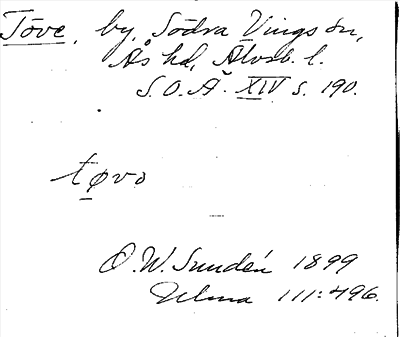 Töve, by, Södra Vings sn,
Ås hd, Älvsb. l.
S.O.Ä. XIV s. 190.
tøvo
O.W. Sundén 1899
Ulma 111:496.